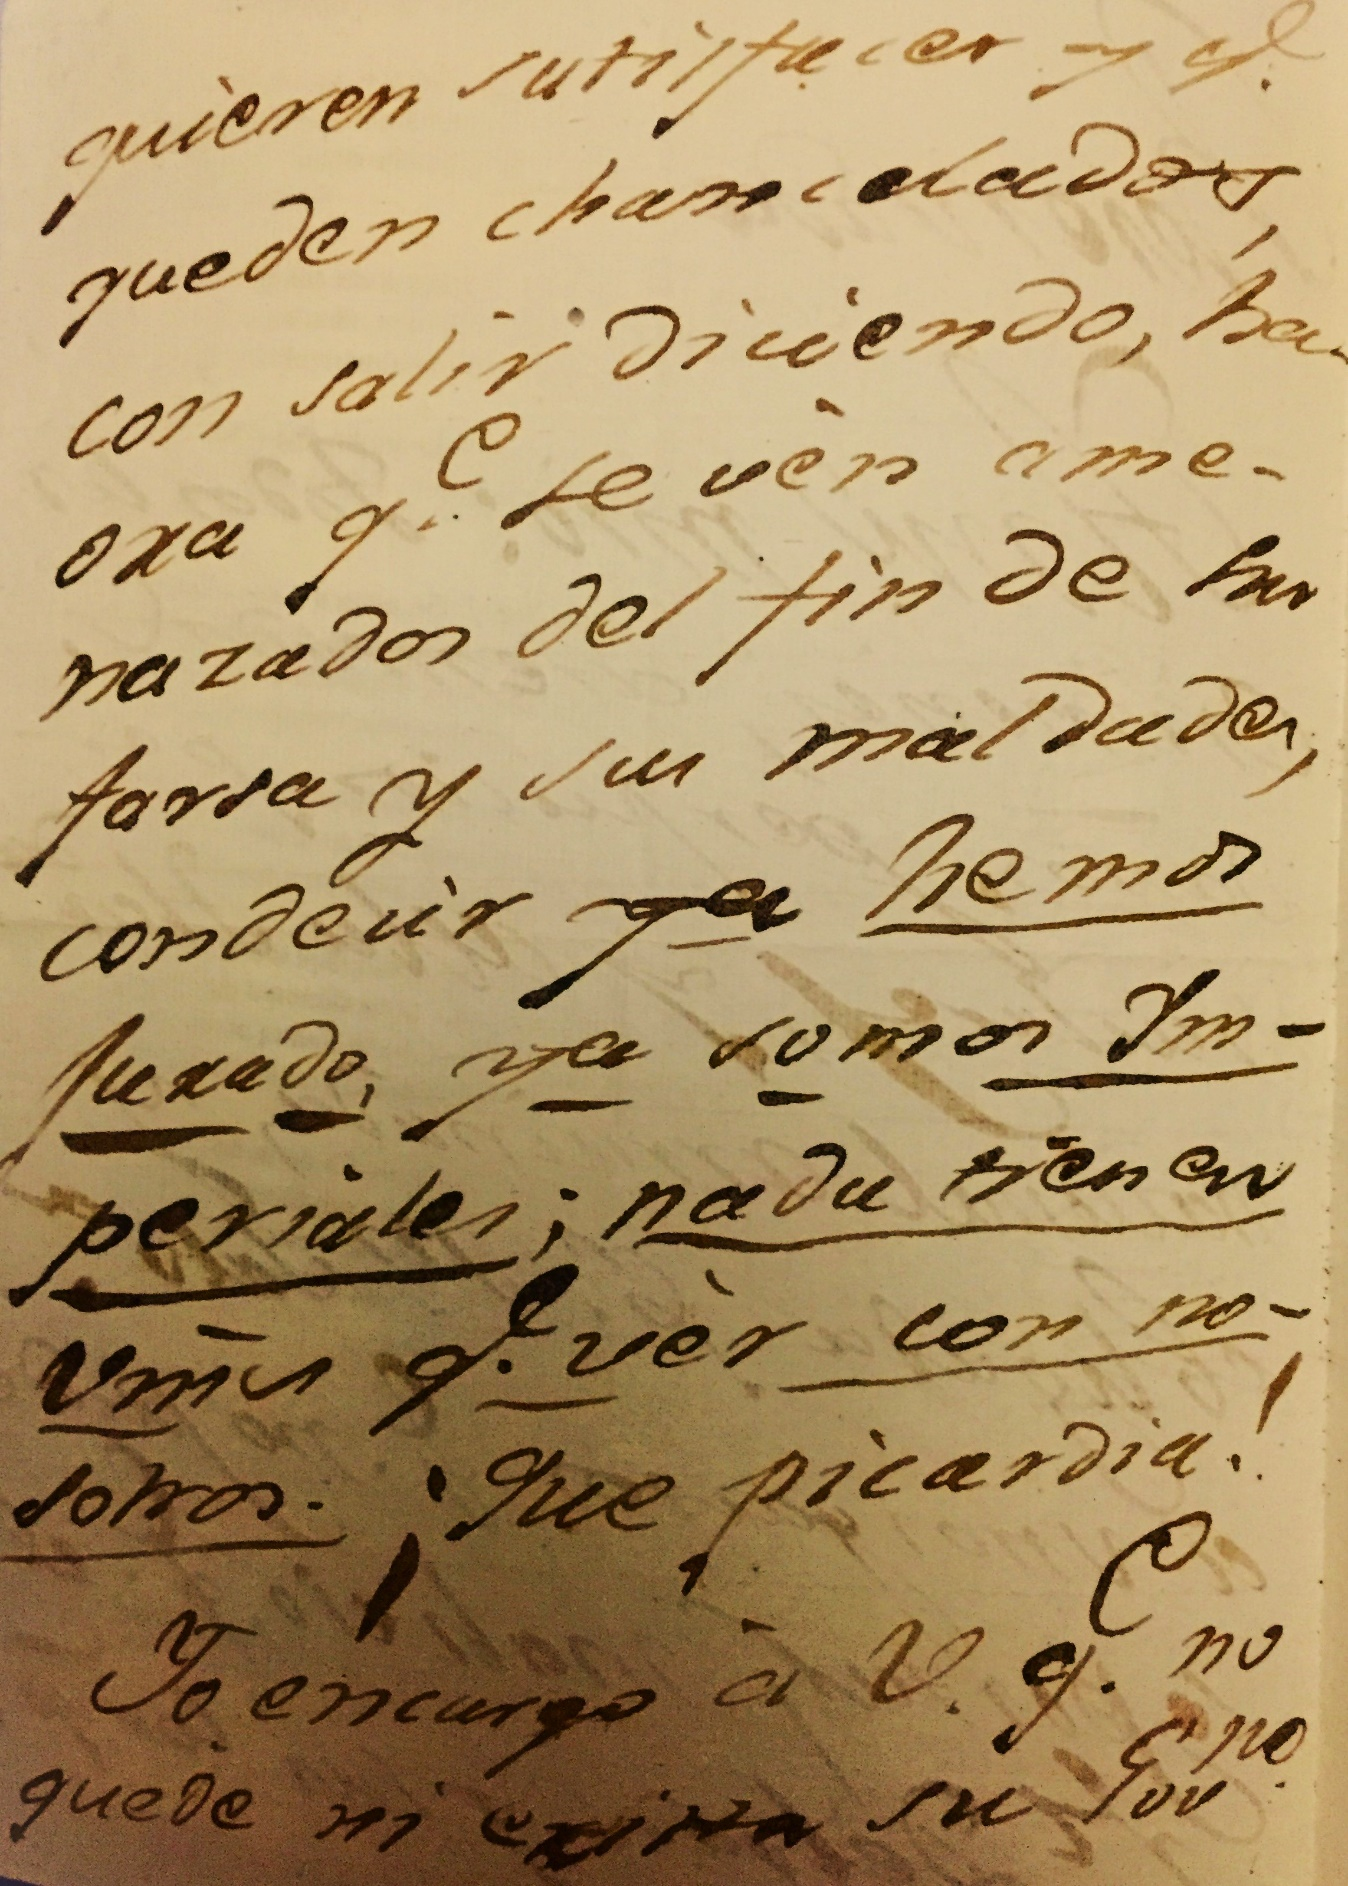 quieren satisfacer y q.e
queden chancelados,
con salir diciendo, ha-
oxa q.e se vèn ame-
nazados del fin de su
farsa y sus maldades,
con decir ya hemos
Juxado, ya somos Ym-
periales; nada tienen
Vms q.e vèr con no-
sotros. ¡Que picardia!
Yo encargo à V. q.e no
quede ni exista su Gov.no